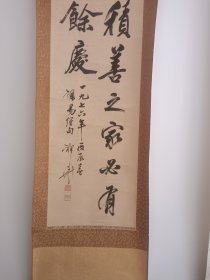 積善之家必有
餘慶
一九七六年丙辰春